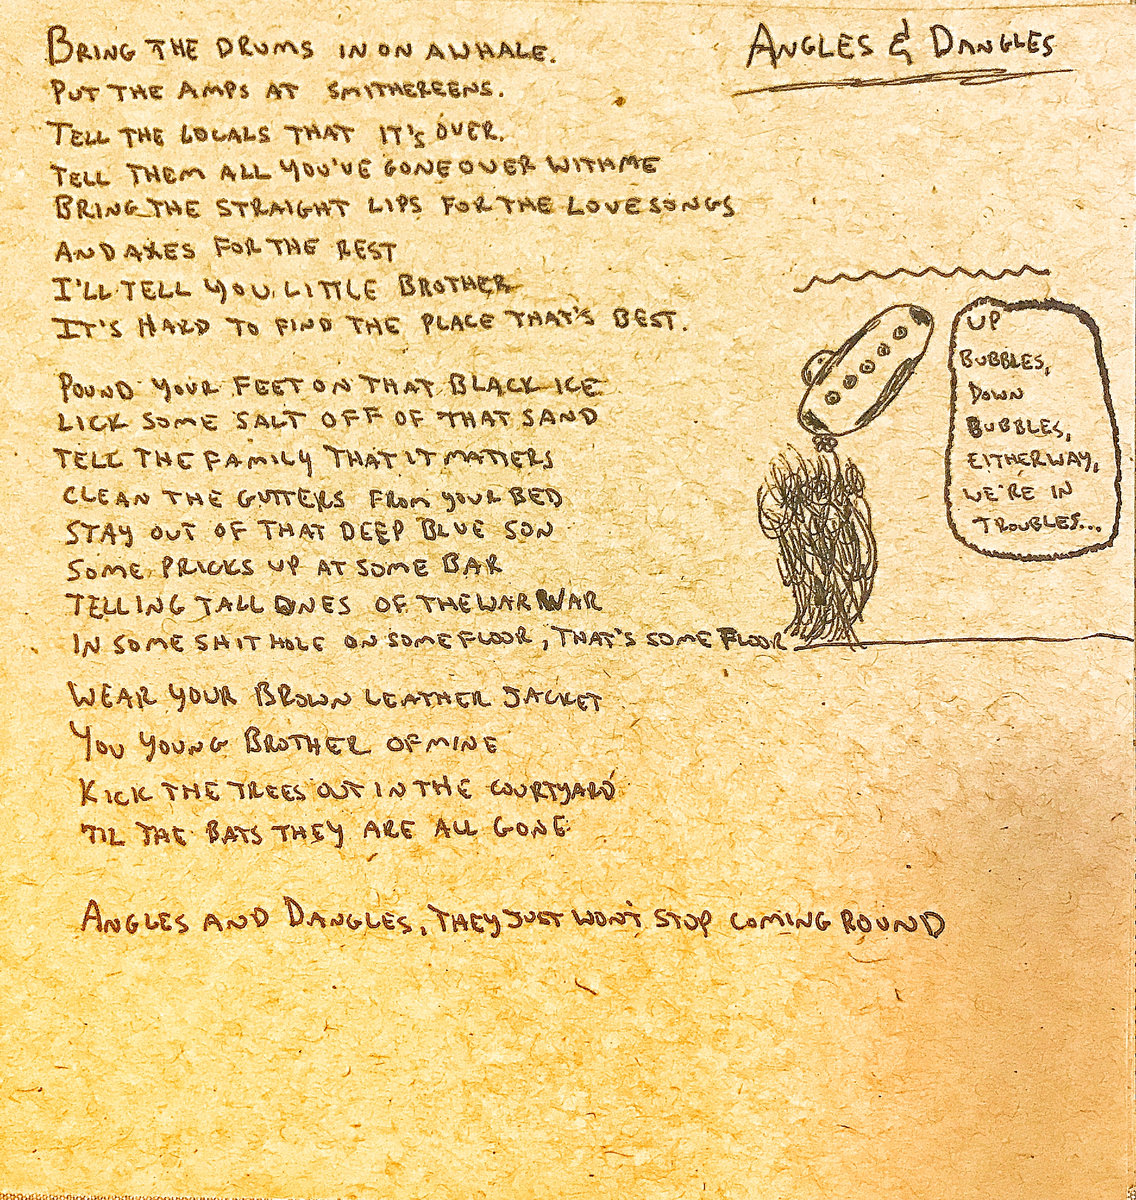 ANGLES & DANGLES
BRING THE DRUMS IN ON A WHALE.
PUT THE AMPS AT SMITHEREENS.
TELL THE LOCALS THAT IT'S OVER.
TELL THEM ALL YOU'VE GONE OVER WITH ME
BRING THE STRAIGHT LIPS FOR THE LOVE SONGS
AND AXES FOR THE REST
I'LL TELL YOU, LITTLE BROTHER
IT'S HARD TO FIND THE PLACE THAT'S BEST.
POUND YOUR FEET ON THAT BLACK ICE
LICK SOME SALT OFF OF THAT SAND
TELL THE FAMILY THAT IT MATTERS
CLEAN THE GUTTERS FROM YOUR BED
STAY OUT OF THAT DEEP BLUE SON
SOME PRICKS UP AT SOME BAR
TELLING TALL ONES OF THE WAR WAR
IN SOME SHIT HOLE ON SOME FLOOR, THAT'S SOME FLOOR
WEAR YOUR BROWN LEATHER JACKET
YOU YOUNG BROTHER OF MINE
KICK THE TREES OUT IN THE COURTYARD
'TIL THE BATS THEY ARE ALL GONE
ANGLES AND DANGLES, THEY JUST WON'T STOP COMING ROUND
UP
BUBBLES,
DOWN
BUBBLES,
EITHER WAY,
WE'RE IN
TROUBLES...